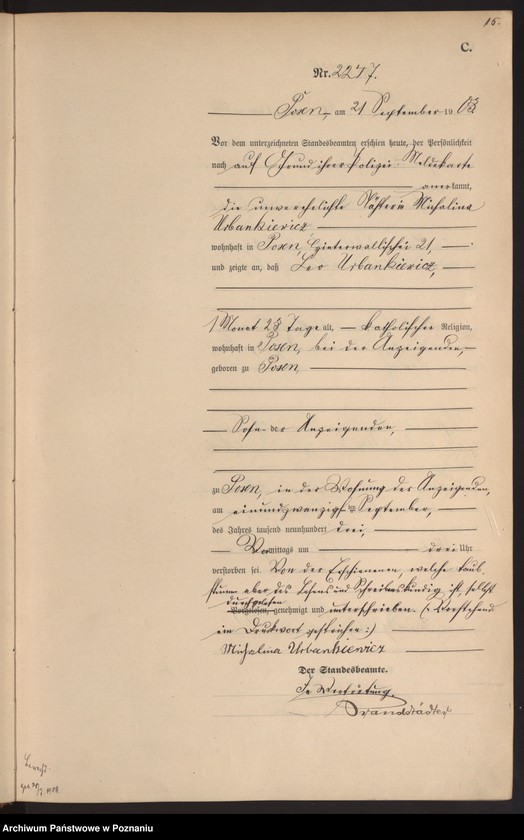 15.
C.
Nr. 2247.
Posen, am 21 September 1903
Vor dem unterzeichneten Standesbeamten erschien heute, der Persönlichkeit
nach auf Grund ihrer Polizei-Meldekarte
anerkannt,
die unverehelichte Nähterin Michalina
Urbankiewicz
wohnhaft in Posen, Hinterwallischei 21,
und zeigte an, daß Leo Urbankiewicz,
1 Monat 23 Tage alt, katholischer Religion,
wohnhaft in Posen, bei der Anzeigenden,
geboren zu Posen,
Sohn der Anzeigenden,
zu Posen, in der Wohnung der Anzeigenden,
am einundzwanzigsten September,
des Jahres tausend neunhundert drei,
Vormittags um drei Uhr
verstorben sei. Von der Erschienenen, welche taub-
stumm aber des Lesens und Schreibens kundig ist, selbst
durchgelesen
Vorgelesen, genehmigt und unterschrieben. (: Vorstehend
ein Druckwort gestrichen :)
Michalina Urbankiewicz
Der Standesbeamte.
In Vertretung.
Brandstädter
Archiwum Państwowe w Poznaniu